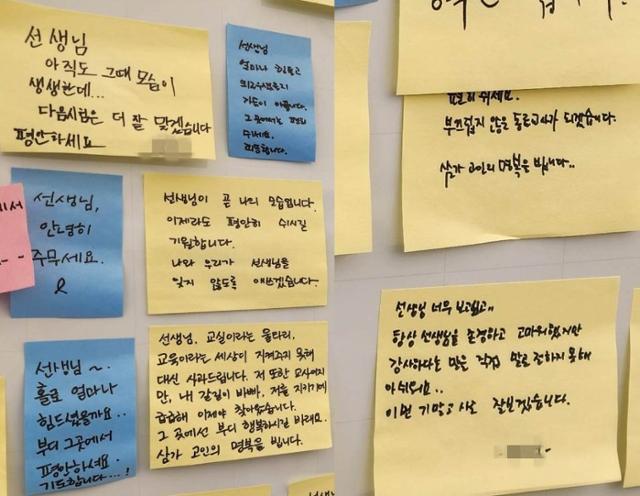 선생님
아직도 그때 모습이
생생한데...
다음시험은 더 잘 맞겠습니다
평안하세요
선생님
얼마나 힘들고
외로우셨을지
가슴이 아픕니다.
그 곳에서는 편히
쉬세요.
죄송합니다.
에서
선생님,
안녕히
주무세요.
선생님이 곧 나의 모습입니다.
이제라도 평안히 쉬시길
기원합니다.
나와 우리가 선생님을
잊지 않도록 애쓰겠습니다.
선생님~
홀로 얼마나
힘드셨을까요..
부디 그곳에서
평안하셔요.
기도합니다...!
선생님, 교실이라는 울타리,
교육이라는 세상이 지켜주지 못해
대신 사과드립니다. 저 또한 교사이지
만, 내 갈길이 바빠, 저를 지키기에
급급해 이제야 찾아왔습니다.
그 곳에선 부디 행복하시길 바래요.
삼가 고인의 명복을 빕니다.
선생님
편히 쉬세요.
부끄럽지 않을 동료교사가 되겠습니다
삼가 고인의 명복을 빕니다..
선생님 너무 보고싶고..
항상 선생님을 존경하고 고마워했지만
감사하다는 말은 직접 말로 전하지 못해
아쉬워요..
이번 기말고사는 잘보겠습니다.